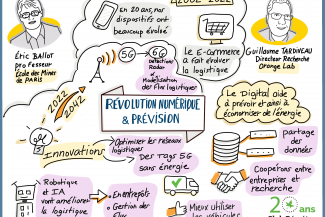 2002-2022
En 20 ans, nos
dispositifs ont
beaucoup évolué
Le E-Commerce
a fait évoluer
la logistique
Éric Ballot
professeur
École des Mines
de PARIS
Guillaume TARDIVEAU
Directeur Recherche
Orange Lab
5G
6G
Détections
Radar
Modélisation
des Flux logistiques
RÉVOLUTION NUMÉRIQUE
& PRÉVISION
Le Digital aide
à prévoir et ainsi à
économiser de l'énergie
2022
2042
Innovations
Optimiser les réseaux
logistiques
Des Tags 5G
Sans énergie
partage
des
données
Coopérons entre
entreprises et
recherche
Robotique
et IA
vont améliorer
la logistique
En entrepôts
Gestion des
Flux
Mieux utiliser
les véhicules
20 ans